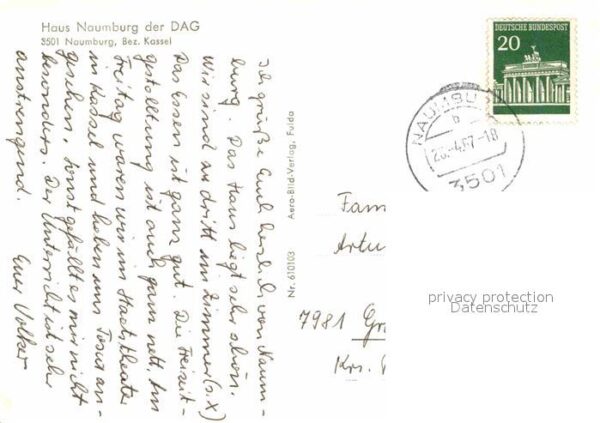 Haus Naumburg der DAG
3501 Naumburg, Bez. Kassel
Ich grüße Euch herzlich von Naum-
burg. Das Haus liegt sehr schön.
Wir sind zu dritt im Zimmer (s. X)
Das Essen ist ganz gut. Die Freizeit-
gestaltung ist auch ganz nett. Am
Freitag waren wir im Staatstheater
in Kassel und haben uns Tosca an-
gesehen. Sonst gefällt es mir nicht
besonders. Der Unterricht ist sehr
anstrengend.
Euer Volker
Nr. 610103 Aero-Bild-Verlag, Fulda
DEUTSCHE BUNDESPOST
20
NAUMBU
b
4.67-18
3501
Fam
Artu
7981 Gr
Krs.
privacy protection
Datenschutz